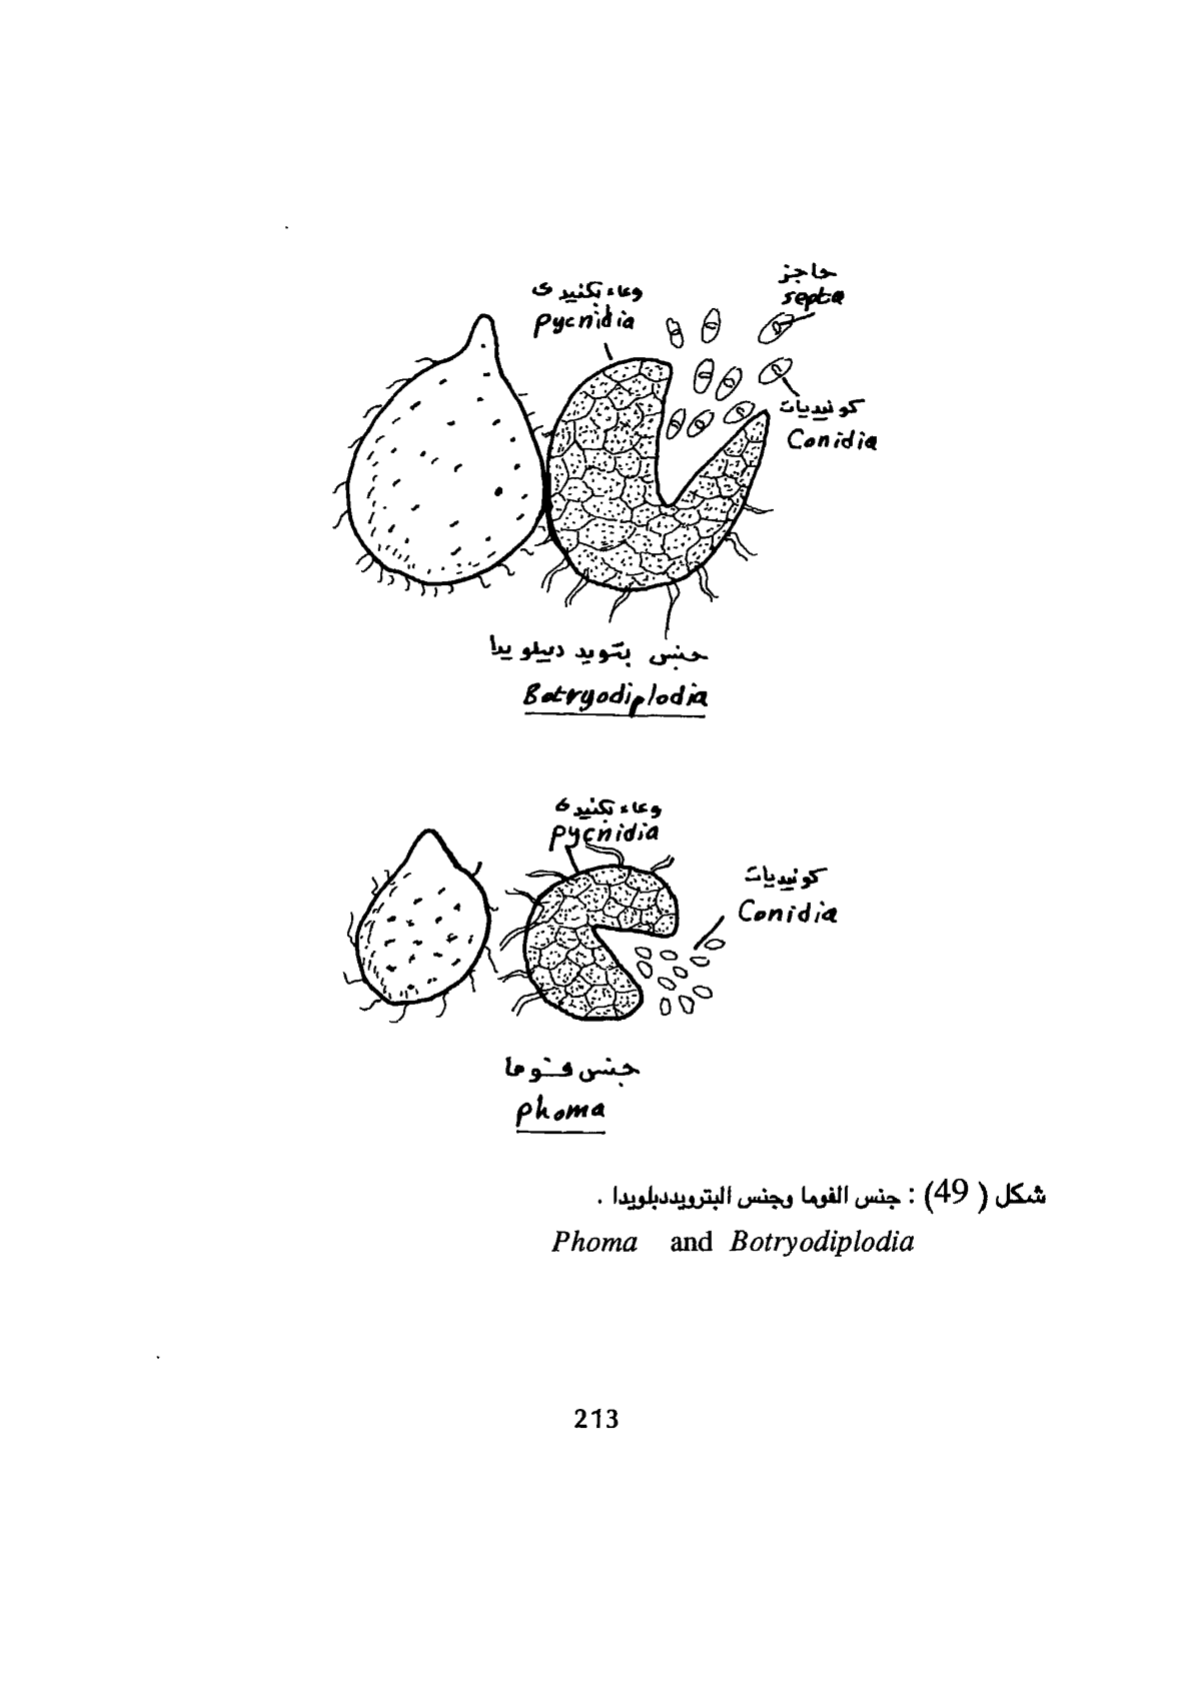 حاجز
septa
وعاء بكنيدى
pycnidia
كونيديات
Conidia
جنس بتويد ديبلويدا
Botryodiplodia
وعاء بكنيدى
pycnidia
كونيديات
Conidia
جنس فوما
phoma
شكل ( 49) : جنس الفوما وجنس البترويددبلويدا .
Phoma and Botryodiplodia
213